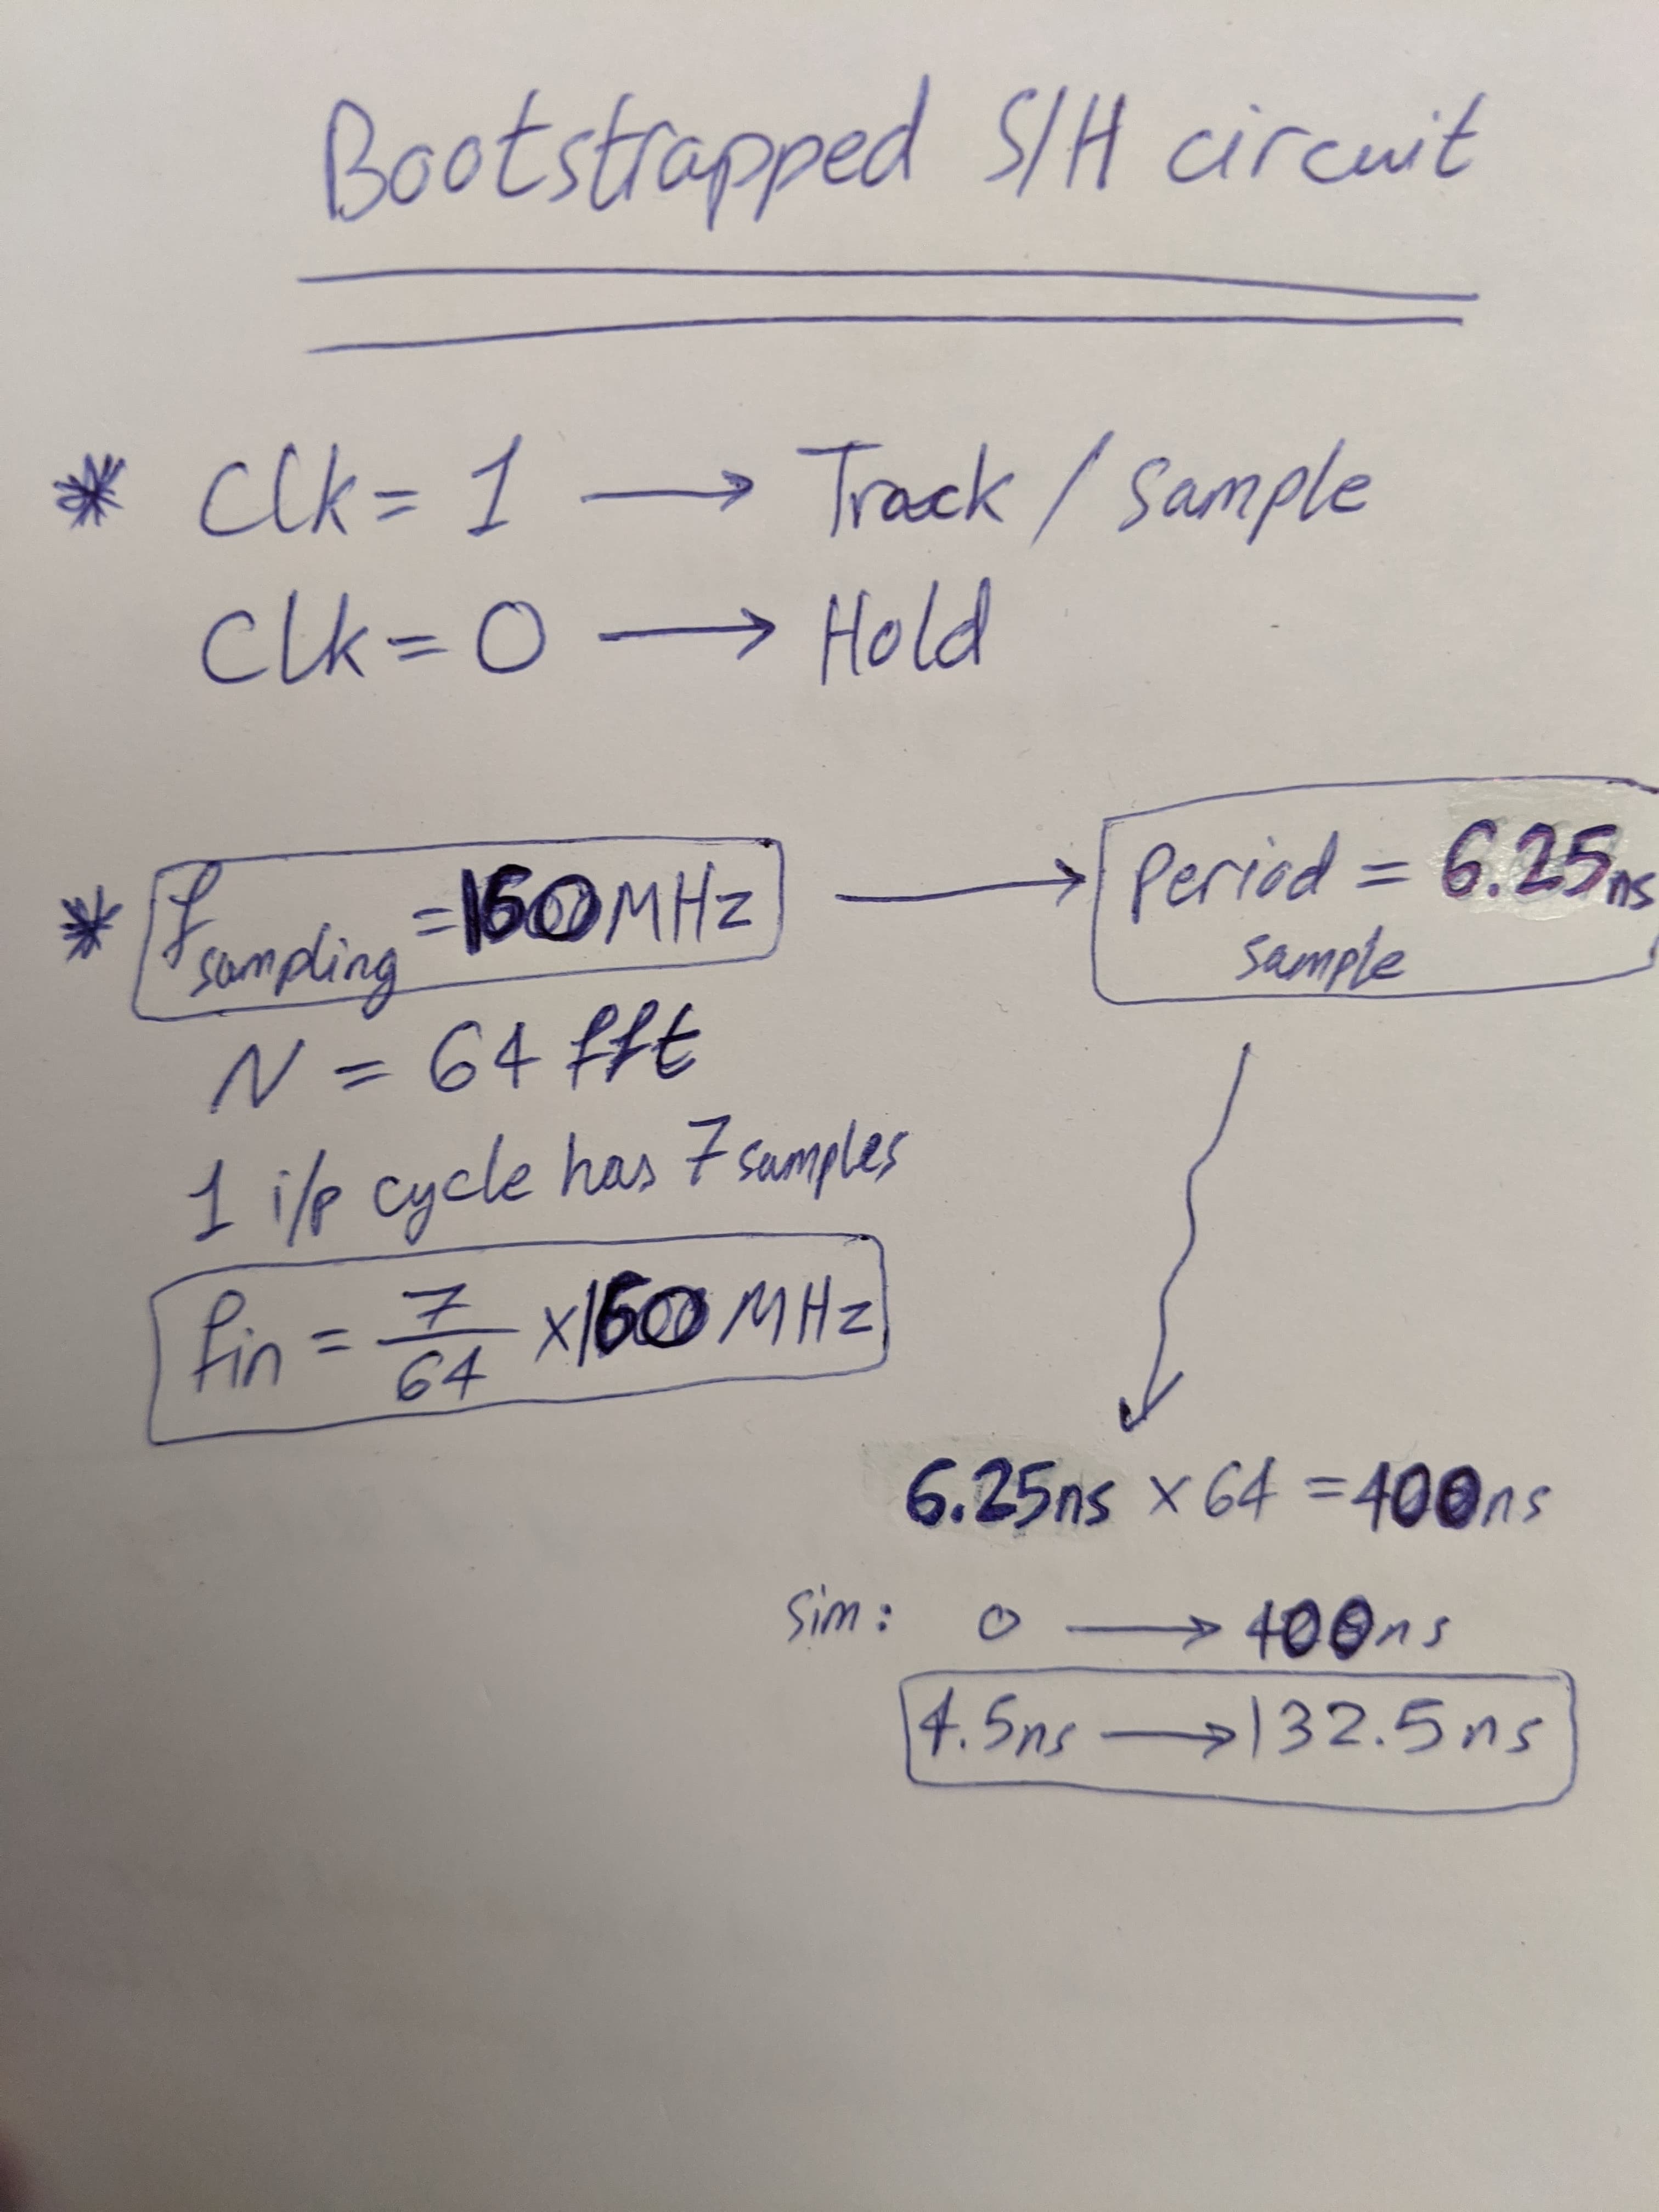 Bootstrapped S/H circuit
* Clk = 1 → Track / Sample
Clk = 0 → Hold
* fsampling = 160 MHz → Period = 6.25ns
sample
N = 64 fft
1 i/p cycle has 7 samples
fin = 7/64 × 160 MHz
6.25ns × 64 = 400ns
Sim: 0 → 400ns
4.5ns → 132.5ns